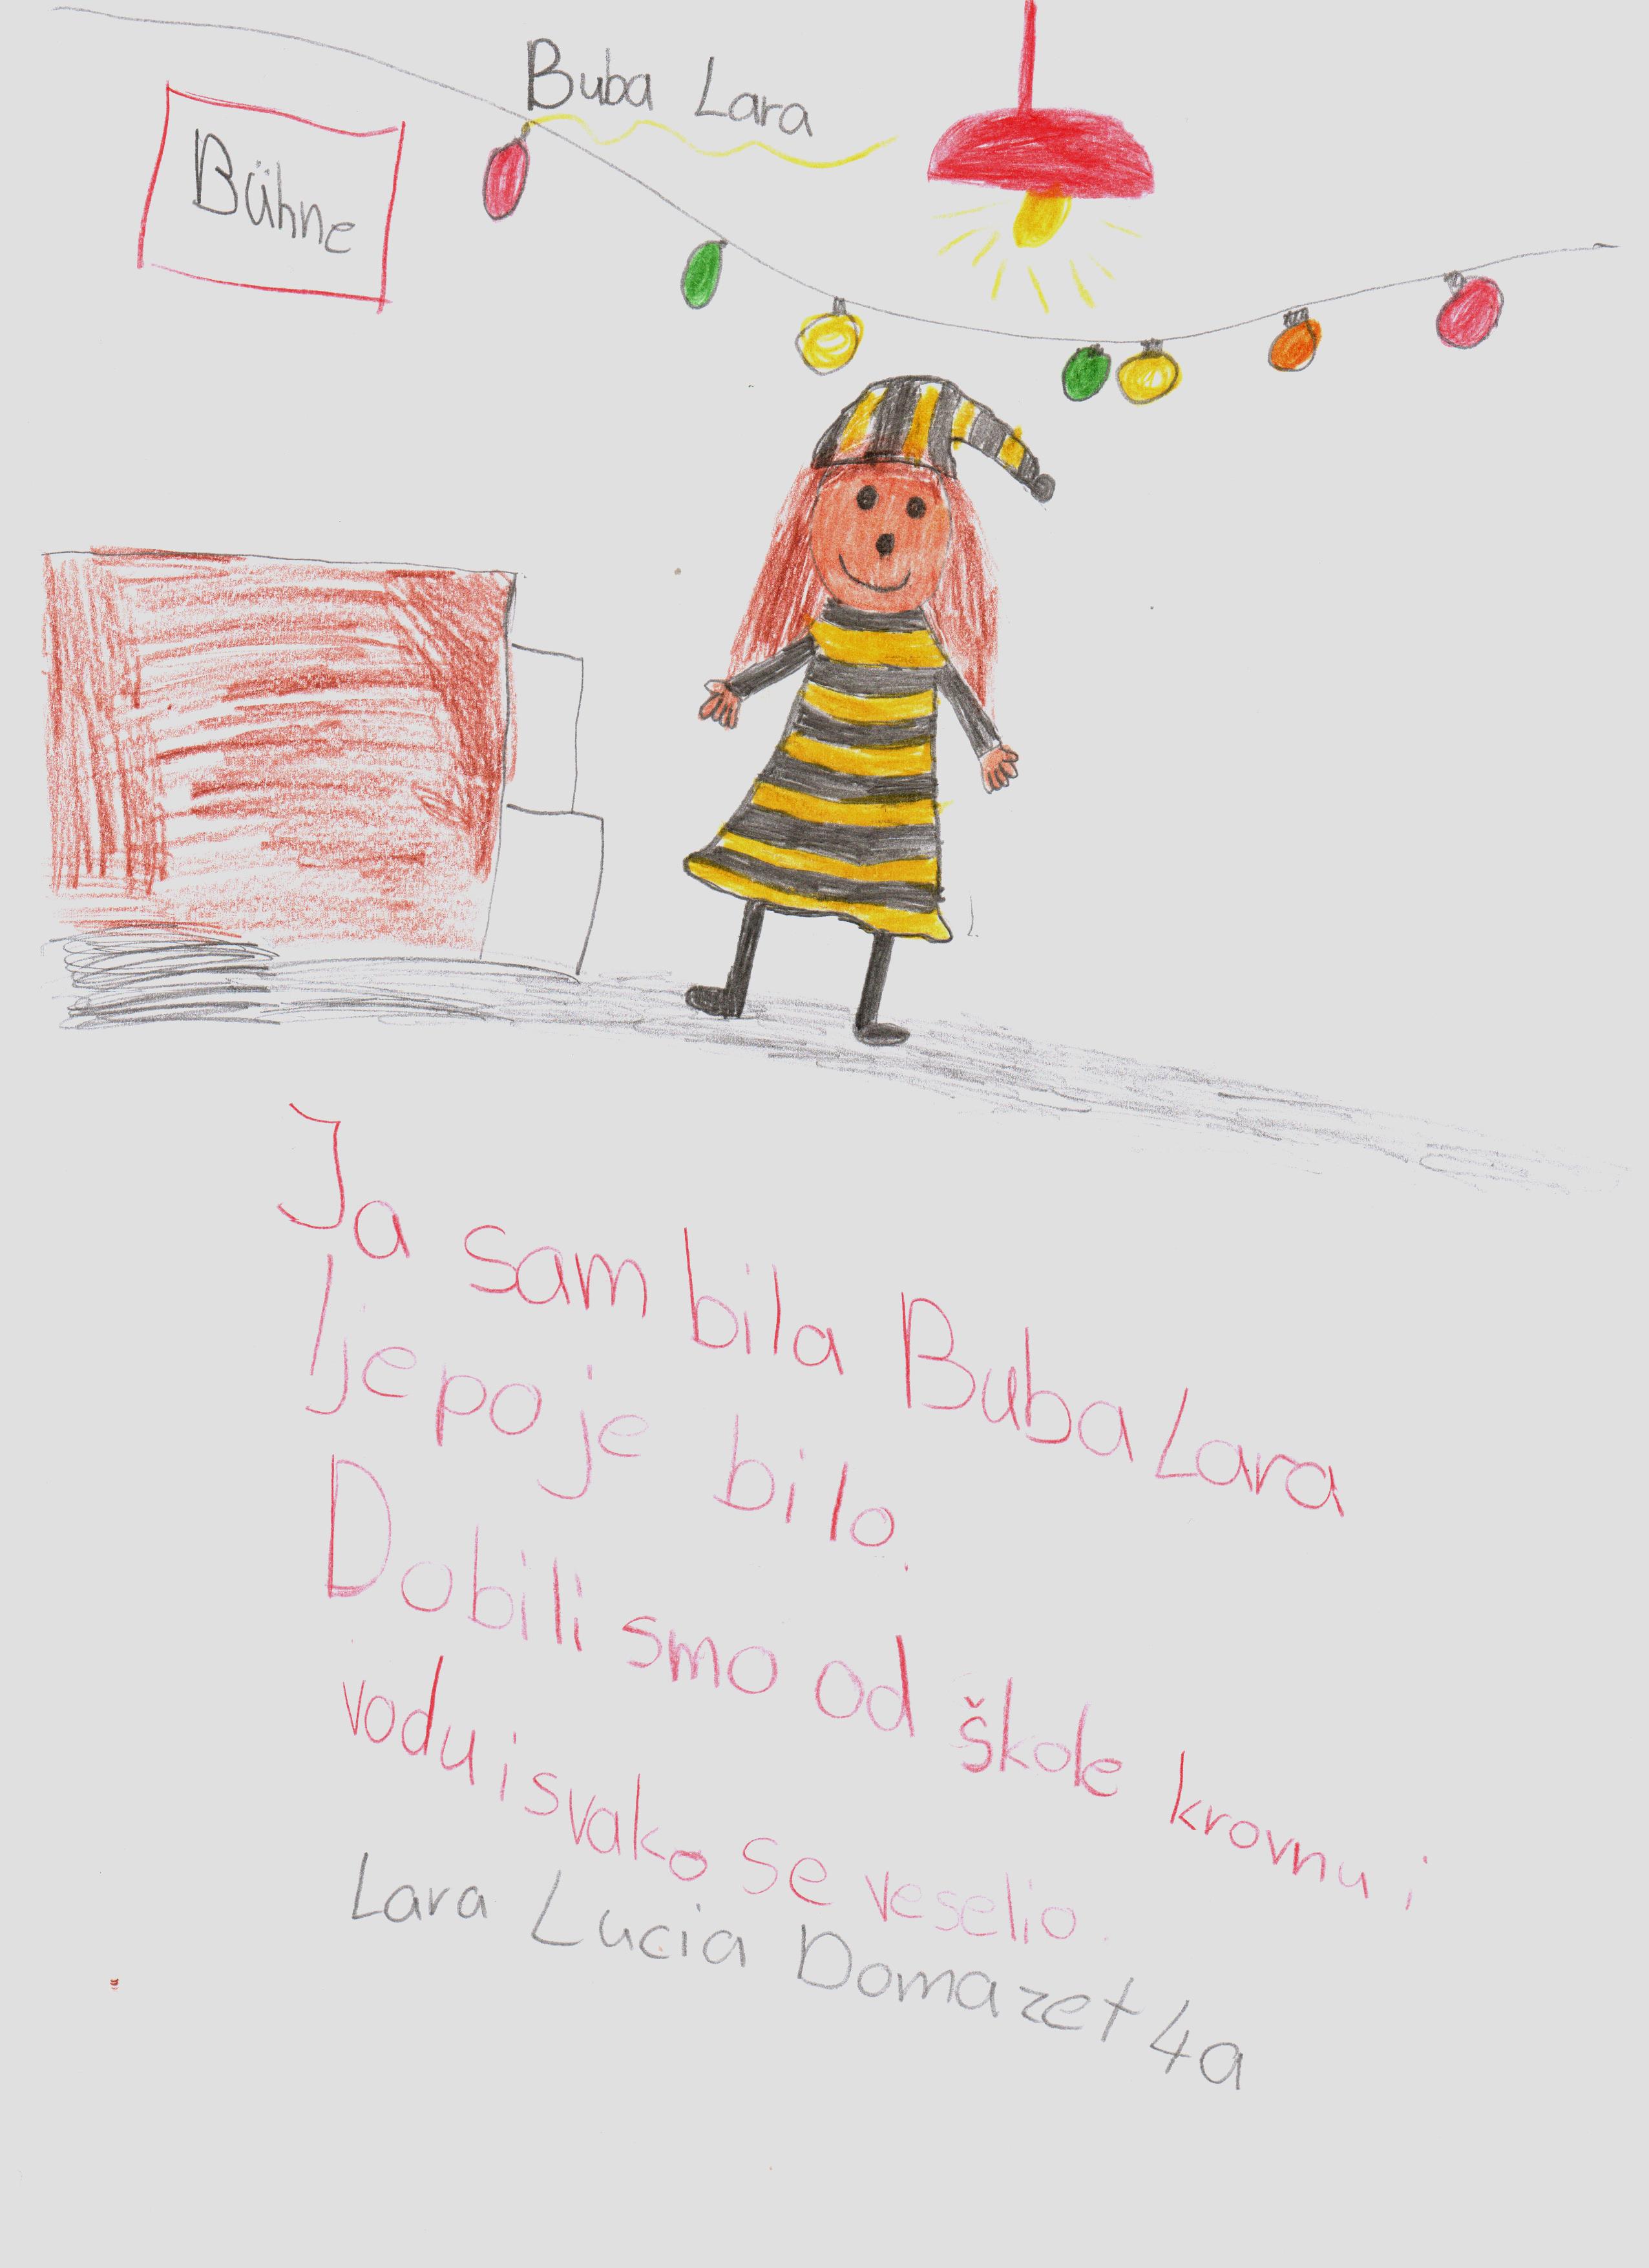 Buba Lara
Bühne
Ja sam bila Buba Lara
ljepo je bilo.
Dobili smo od škole krovnu i
vodu i svako se veselio.
Lara Lucia Domazet 4a